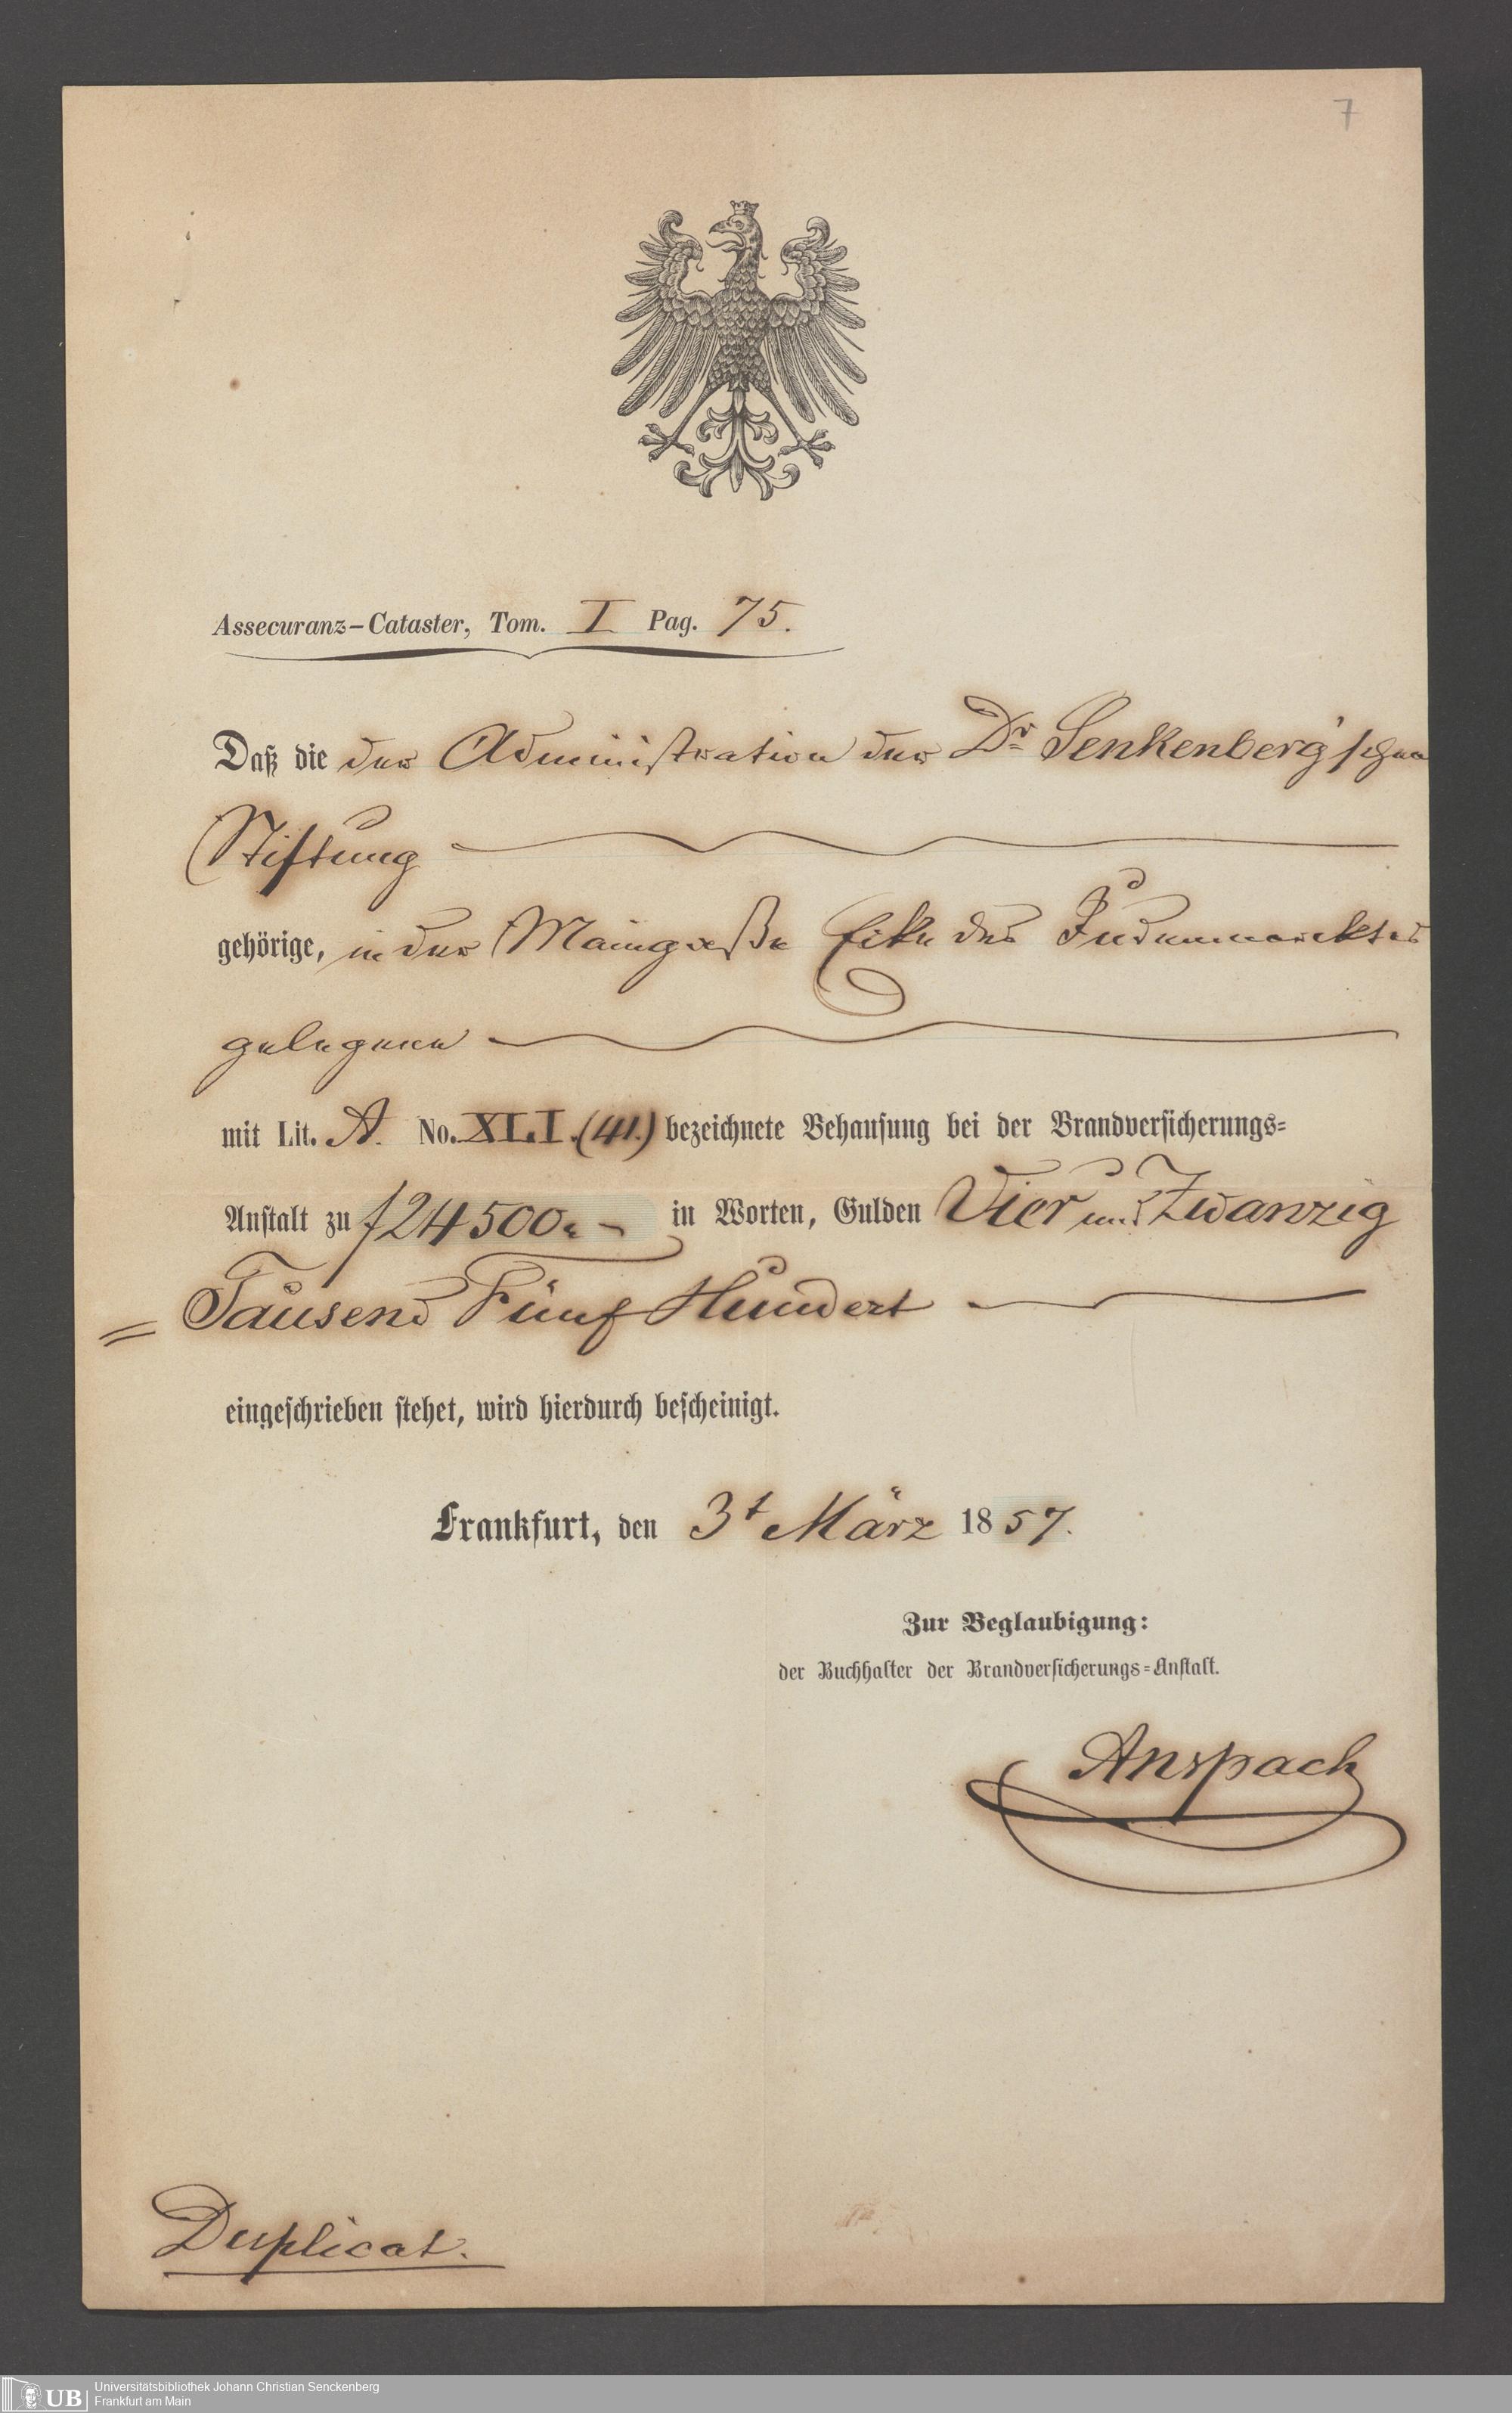 7
Assecuranz-Cataster, Tom. I Pag. 75.
Daß die der Administration der Dr Senkenberg'schen
Stiftung
gehörige, in der Maingaße Ecke des Judenmarcktes
gelegene
mit Lit. A. No. XLI. (41.) bezeichnete Behausung bei der Brandversicherungs=
Anstalt zu f 24500.- in Worten, Gulden Vier und Zwanzig
= Tausend Fünf Hundert
eingeschrieben stehet, wird hierdurch bescheinigt.
Frankfurt, den 3t März 1857.
Zur Beglaubigung:
der Buchhalter der Brandversicherungs=Anstalt.
Anspach
Duplicat.
UB
Universitätsbibliothek Johann Christian Senckenberg
Frankfurt am Main